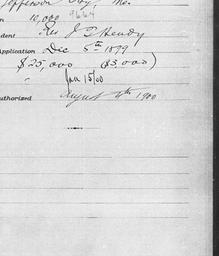 Jefferson City, Mo.
10,000 9664
dent Res J T Hendy
Application Dec 5th 1899
$25,000 ($3,000)
" Jan 15/00
uthorized August 4th 1900